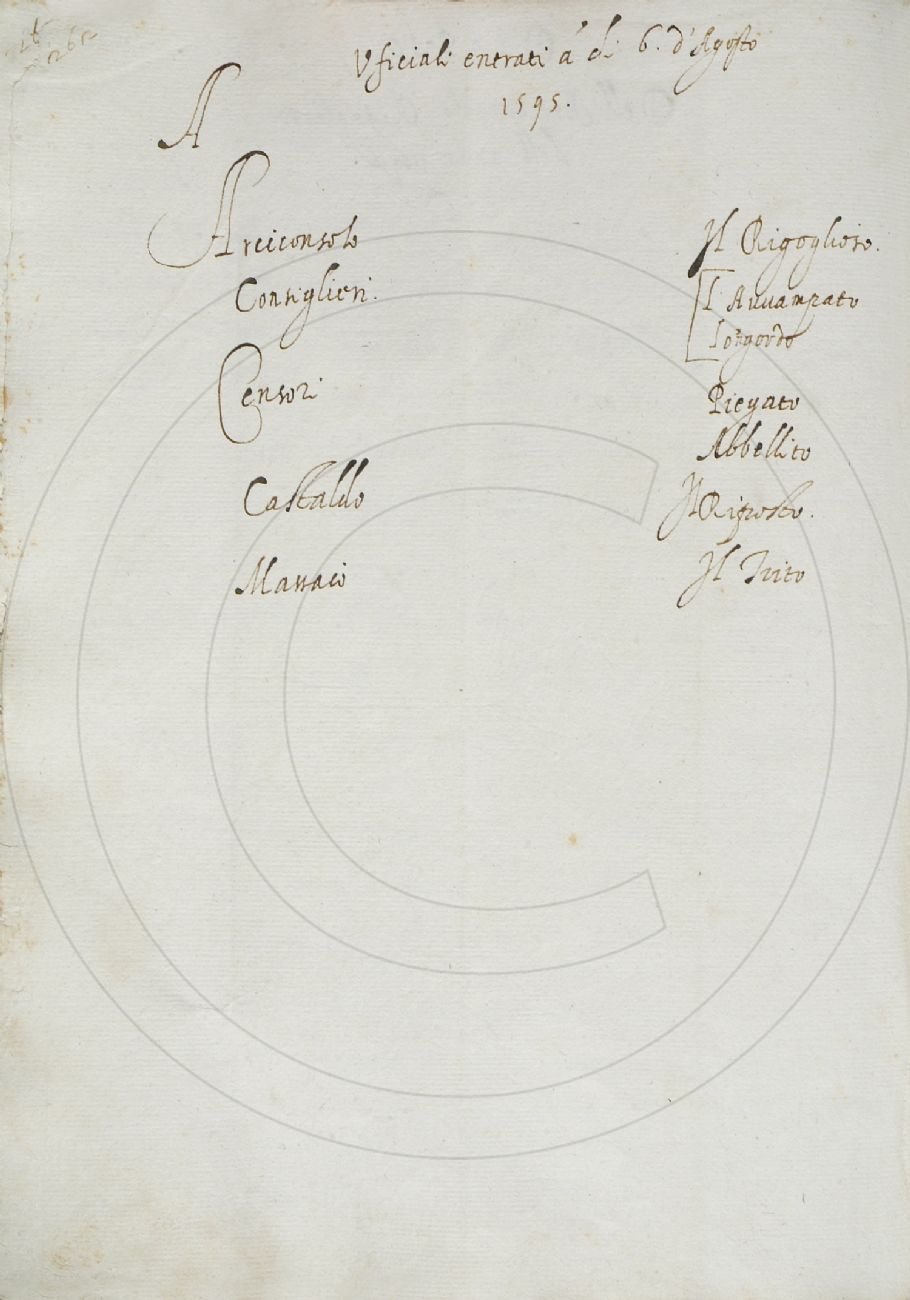 262
Vficiali entrati á di 6. d'Agosto
1595.
A
Arciconsolo Il Rigoglioso.
Consiglieri. L'Auuampato
Lo'ngordo
Censori Piegato
Abbellito
Castaldo Il Riposto.
Massaio Il Trito